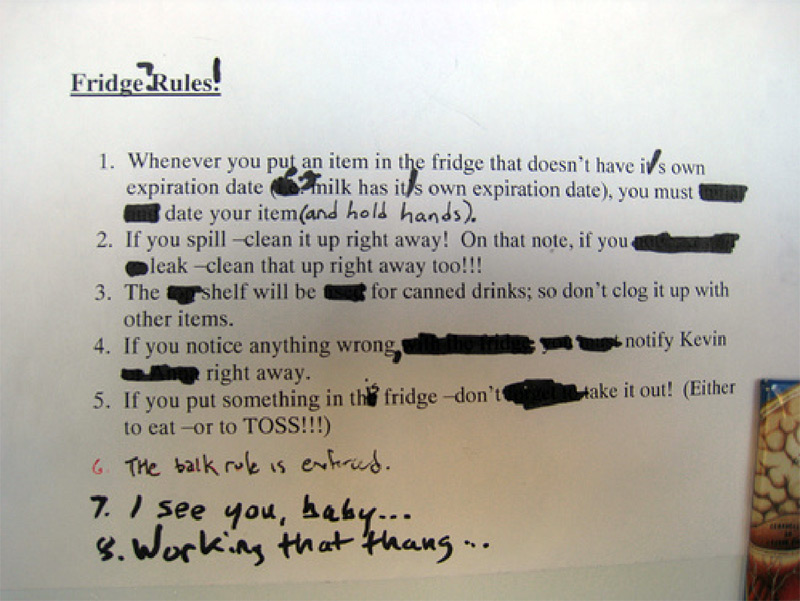 Fridge? Rules!
1. Whenever you put an item in the fridge that doesn't have it/s own
expiration date (i.e. milk has it/s own expiration date), you must
date your item (and hold hands).
2. If you spill –clean it up right away! On that note, if you
leak –clean that up right away too!!!
3. The shelf will be used for canned drinks; so don't clog it up with
other items.
4. If you notice anything wrong, with the fridge, you must notify Kevin
right away.
5. If you put something in this fridge –don't forget to take it out! (Either
to eat –or to TOSS!!!)
6. The balk rule is enforced.
7. I see you, baby...
8. Working that thang...